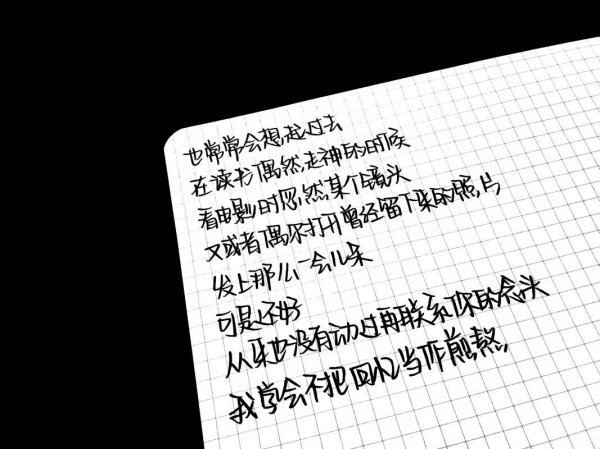 也常常会想起过去
在读书偶然走神的时候
看电影时忽然某个镜头
又或者偶尔打开曾经留下来的照片
发上那么一会儿呆
可是还好
从来也没有动过再联系你的念头
我学会不把回忆当作煎熬